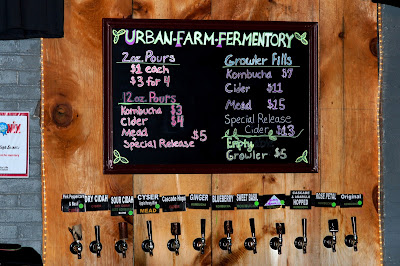 URBAN-FARM-FERMENTORY
2oz Pours
$1 each
$3 for 4
12oz Pours
Kombucha $3
Cider $4
Mead $5
Special Release
Growler Fills
Kombucha $9
Cider $11
Mead $15
Special Release
Cider $13
Empty
Growler $5
DRY CIDAH
SOUR CIDAH
CYSER
MEAD
Cascade Hops
GINGER
BLUEBERRY
SWEET BASIL
HOPPED
ROSE PETAL
Original